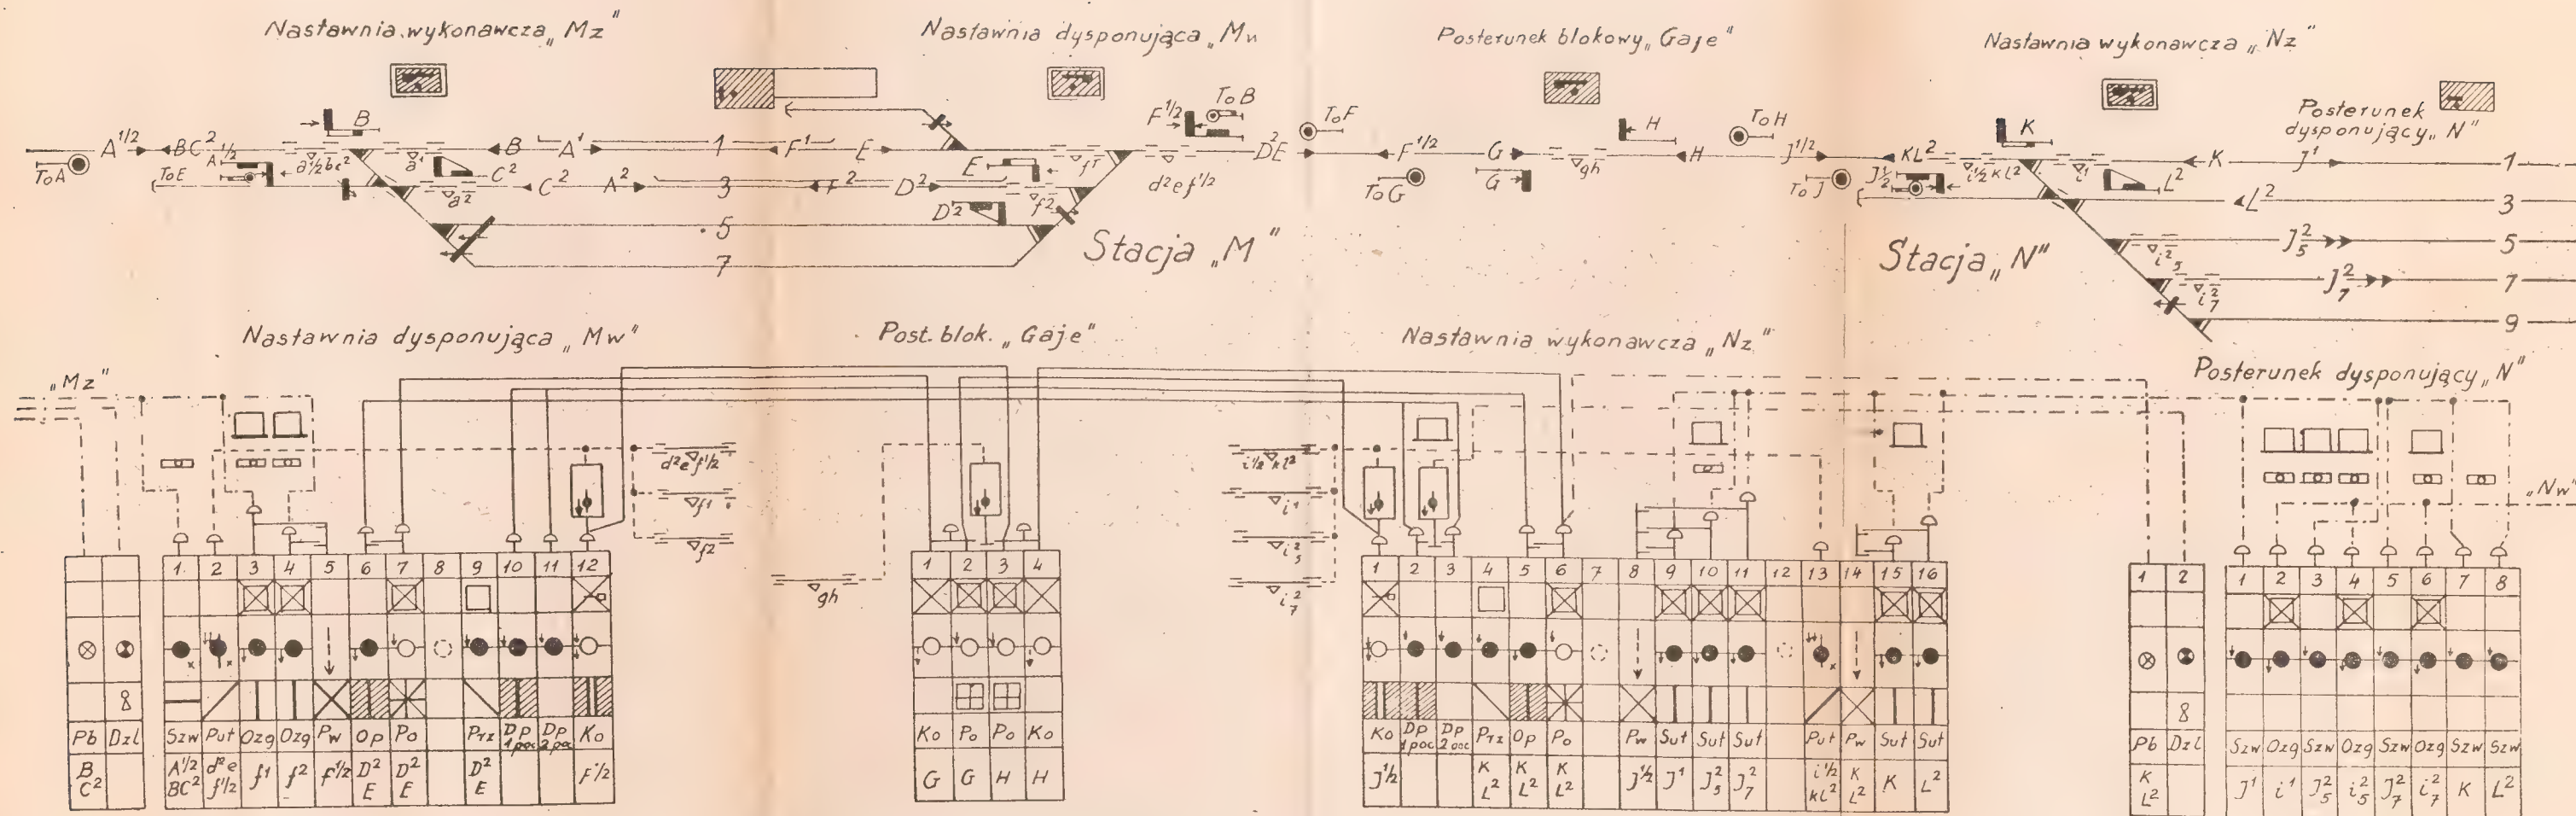 Nastawnia wykonawcza „Mz"
Nastawnia dysponująca „Mw
Posterunek blokowy „Gaje"
Nastawnia wykonawcza „Nz"
Posterunek
dysponujący „N"
A1/2 BC2 A1/2 a1/2bc2 B a1 B A1 1 F1 E E f1 F1/2 ToB d2ef1/2 D2E ToF
ToA ToE a2 C2 C2 A2 3 F2 D2 D2 f2
F1/2 G gh H H ToH J1/2 KL2 i1/2kl2 K i1 K J1 1
ToG G ToJ J1/2 L2 L2 3
5
7
Stacja „M"
Stacja „N"
i2/5 J2/5 5
i2/7 J2/7 7
9
Nastawnia dysponująca „Mw"
Post. blok. „Gaje"
Nastawnia wykonawcza „Nz"
Posterunek dysponujący „N"
„Mz"
d2ef1/2
f1
f2
gh
i1/2kl2
i1
i2/5
i2/7
„Nw"
1 2 3 4 5 6 7 8 9 10 11 12
Pb Dzl Szw Put Ozg Ozg Pw Op Po Prz Dp 1 poc Dp 2 poc Ko
B C2 A1/2 BC2 d2e f1/2 f1 f2 f1/2 D2 E D2 E D2 E F1/2
1 2 3 4
Ko Po Po Ko
G G H H
1 2 3 4 5 6 7 8 9 10 11 12 13 14 15 16
Ko Dp 1 poc Dp 2 poc Prz Op Po Pw Sut Sut Sut Put Pw Sut Sut
J1/2 K L2 K L2 K L2 J1/2 J1 J2/5 J2/7 i1/2 kl2 K L2 K L2
1 2
Pb Dzl
K L2
1 2 3 4 5 6 7 8
Szw Ozg Szw Ozg Szw Ozg Szw Szw
J1 i1 J2/5 i2/5 J2/7 i2/7 K L2